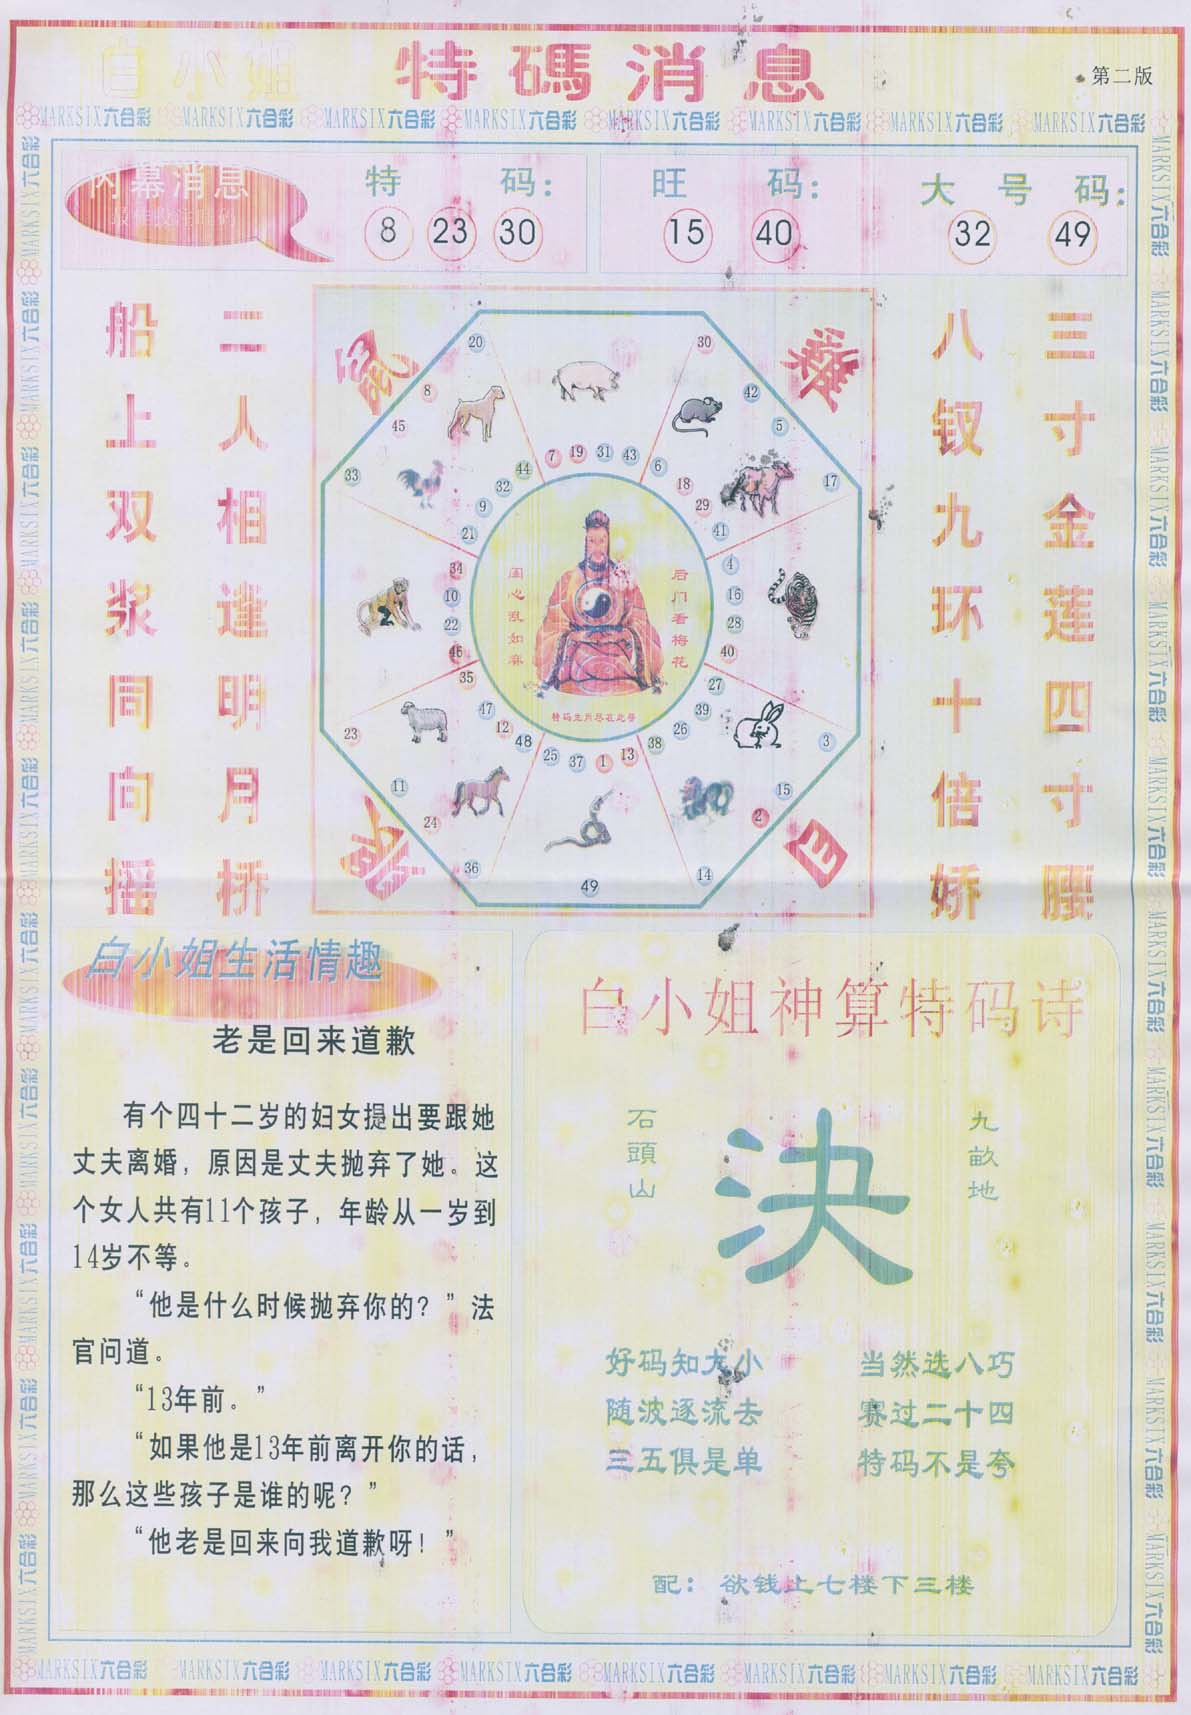 白小姐 特碼消息 第二版
MARKSIX六合彩 MARKSIX六合彩 MARKSIX六合彩 MARKSIX六合彩 MARKSIX六合彩 MARKSIX六合彩 MARKSIX六合彩 MARKSIX六合彩
内幕消息
特 码：
8 23 30
旺 码：
15 40
大 号 码：
32 49
三寸金莲四寸腰
八钗九环十倍娇
二人相逢明月桥
船上双浆同向摇
鼠
雞
羊
20 8 45 33
30 42 5 17
44 32 9 21
7 19 31 43
6 18 29 41
34 10 22 46
4 16 28 40
35 47 12 48
25 37 1 13
38 26 39 27
23 11 24 36
49
14 2 15 3
后门看梅花
闺心乱如麻
特码生肖尽在此番
白小姐生活情趣
老是回来道歉
有个四十二岁的妇女提出要跟她
丈夫离婚，原因是丈夫抛弃了她。这
个女人共有11个孩子，年龄从一岁到
14岁不等。
“他是什么时候抛弃你的？”法
官问道。
“13年前。”
“如果他是13年前离开你的话，
那么这些孩子是谁的呢？”
“他老是回来向我道歉呀！”
白小姐神算特码诗
九畝地
石頭山
決
好码知大小 当然选八巧
随波逐流去 赛过二十四
三五俱是单 特码不是夸
配：欲钱上七楼下三楼
MARKSIX六合彩 MARKSIX六合彩 MARKSIX六合彩 MARKSIX六合彩 MARKSIX六合彩 MARKSIX六合彩 MARKSIX六合彩 MARKSIX六合彩